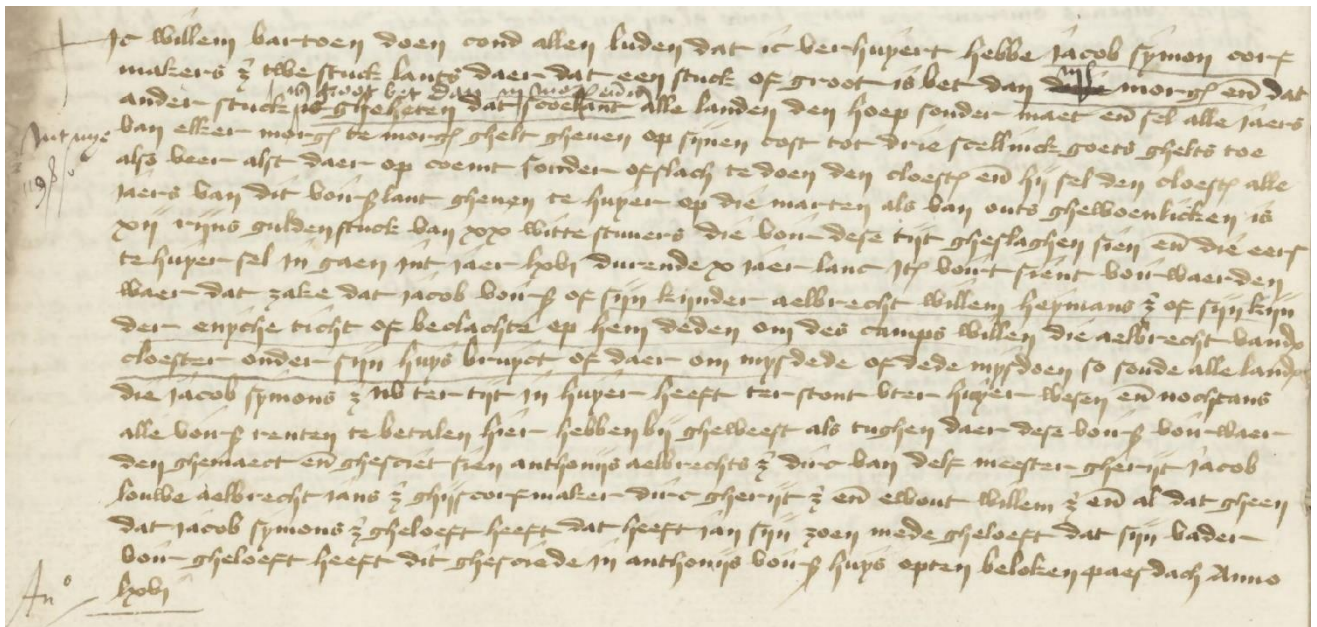 Ic willem bartoen doen cond allen luden dat ic verhuyert hebbe jacob symon corf
makers z twe stuck lants daer dat een stuck of groot is bet dan morg en dat
ander stuck is gheheten dat scoelant alle landen den hoep sonder maet en sel alle jaers
van elker morg te morg ghelt gheven op sijnen cost tot drie scellinck goets ghelts toe
also veer alst daer op coemt sonder ofslach te doen den cloest en hij sel den cloest alle
jaers van dit vours lant gheven te huyer op die marten als van outs ghewoenlicken is
xij rijns gulden stuck van xx witte stuvers die vour dese tijt gheslaghen sien en die eers
te huyer sel in gaen int jaer lxvi durende x jaer lanc It vourt sient vourwaerden
waer dat zake dat jacob vours of sijn kijnder aelbrecht willem heymans z of sijn kijn
der enyche ticht of beclachte op hem deden om des camps willen die aelbrecht vand
cloester onder sijn huys bruyct of daer om mysdede of dede mysdoen so soude alle land
die jacob symons z nv ter tijt in huyer heeft terstont vter huyer wesen en nochtans
alle vours renten te betalen hier hebben bij gheweest als tughen daer dese vours vourwaer
den ghemaect en ghesciet sien anthonijs aelbrechts z dirc van delf meester gherijt jacob
louwe aelbrecht jans z ghijs corfmaker dirc gherijt z en ewout willem z en al dat gheen
dat jacob symons z gheloeft heeft dat heeft jan sijn zoen mede gheloeft dat sijn vader
vour gheloeft heeft dit ghesciede in anthonijs vours huys opten beloken paesdach Anno
lxvi
An°